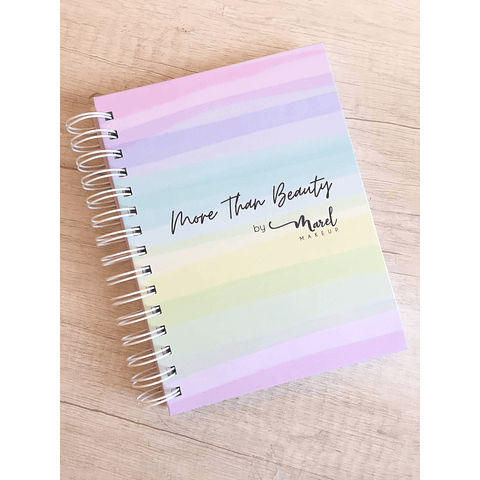 More Than Beauty
by Marel
MAKEUP